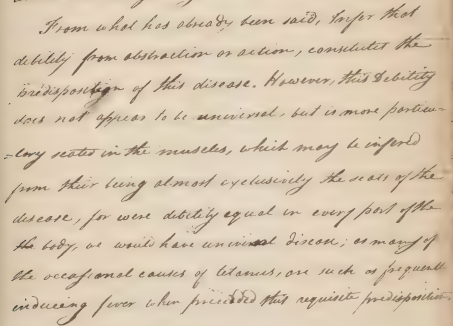 From what has already been said, I infer that
debility from abstraction or action, constitutes the
predisposition of this disease. However, this Debility
does not appear to be universal, but is more particu-
=lary seated in the muscles, which may be infered
from their being almost exclusively the seats of the
disease, for were debility equal in every part of the
the body, we would have universal disease; as many of
the occasional causes of tetanus, are such as frequent
induceing fever when preceded this requisite predisposition